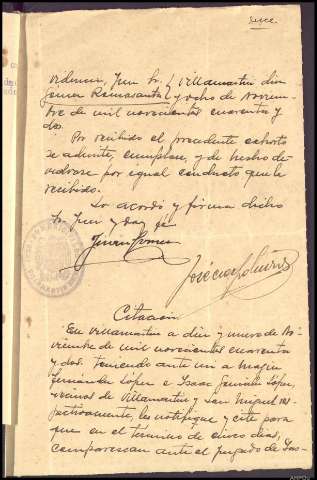 once.
Providencia, Juez Sr. } Villamartín diez
Gómez Romasanta } y ocho de Noviem-
bre de mil novecientos cuarenta y
dos.
Por recibido el precedente exhorto
se admite, cúmplase, y de hecho de-
vuélvase por igual conducto que le
recibido.
Lo acordó y firma dicho
Sr. Juez y doy fe
José
Citación.
En Villamartín a diez y nueve de No-
viembre de mil novecientos cuarenta
y dos, teniendo ante mi a
Fernández López e Isaac López,
vecinos de Villamartín y San Miguel res-
pectivamente, les notifiqué y cité para
que en el término de cinco días,
comparescan ante el juzgado de